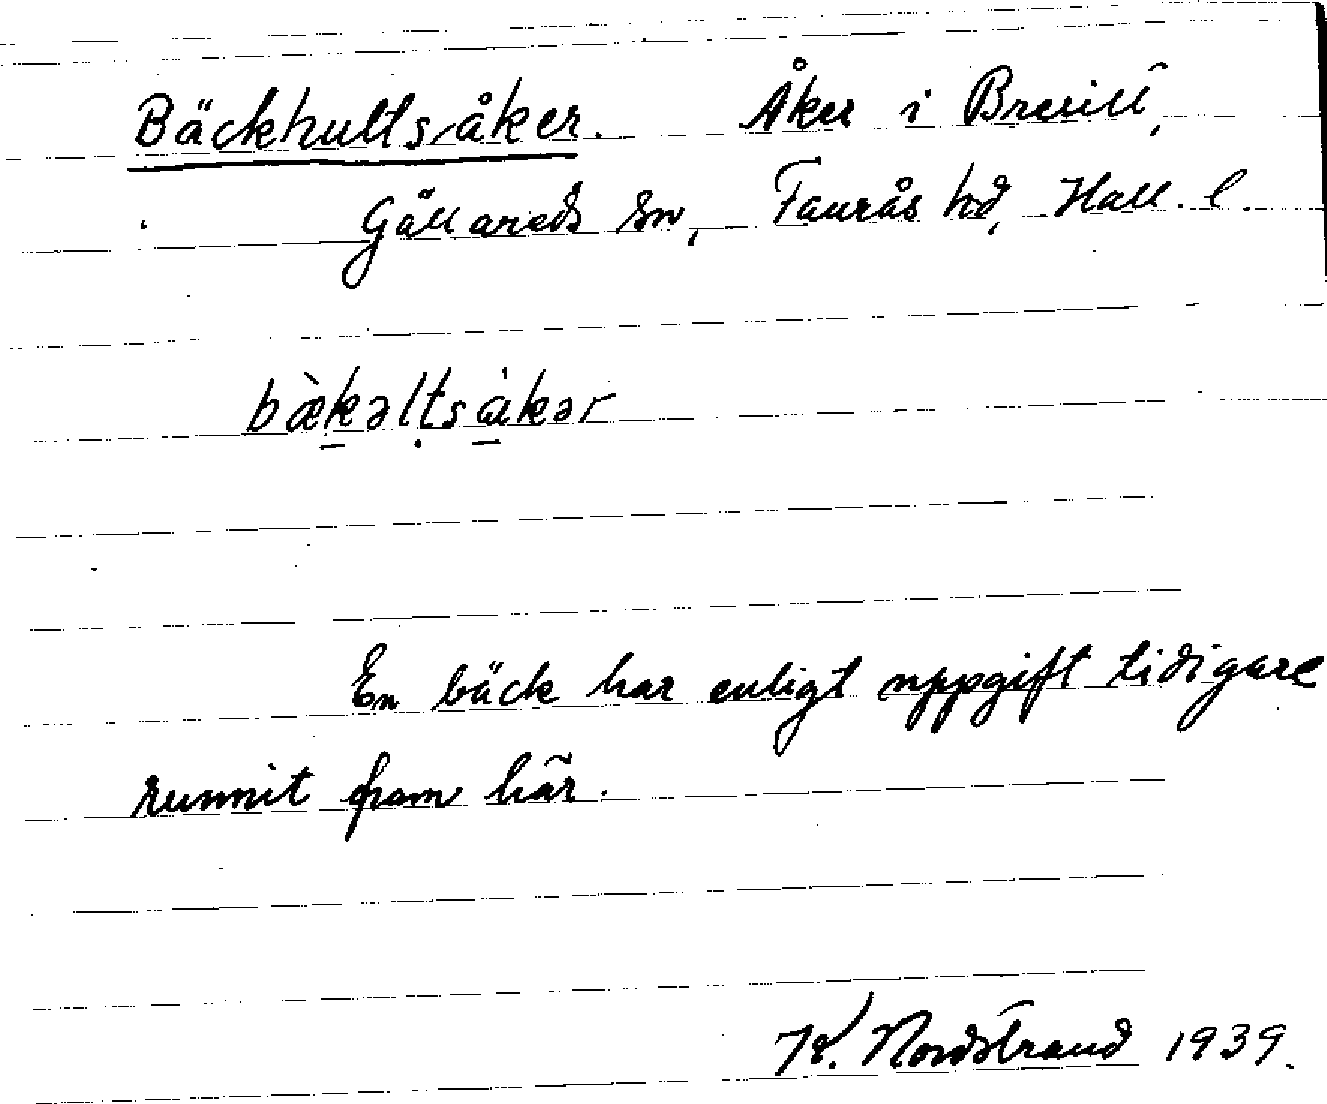 Bäckhultsåker. Åker i
Gällareds sn, Faurås hd, Hall. l.
bæ̀kəltsåkər
En bäck har enligt uppgift tidigare
runnit fram här.
Nordstrand 1939.